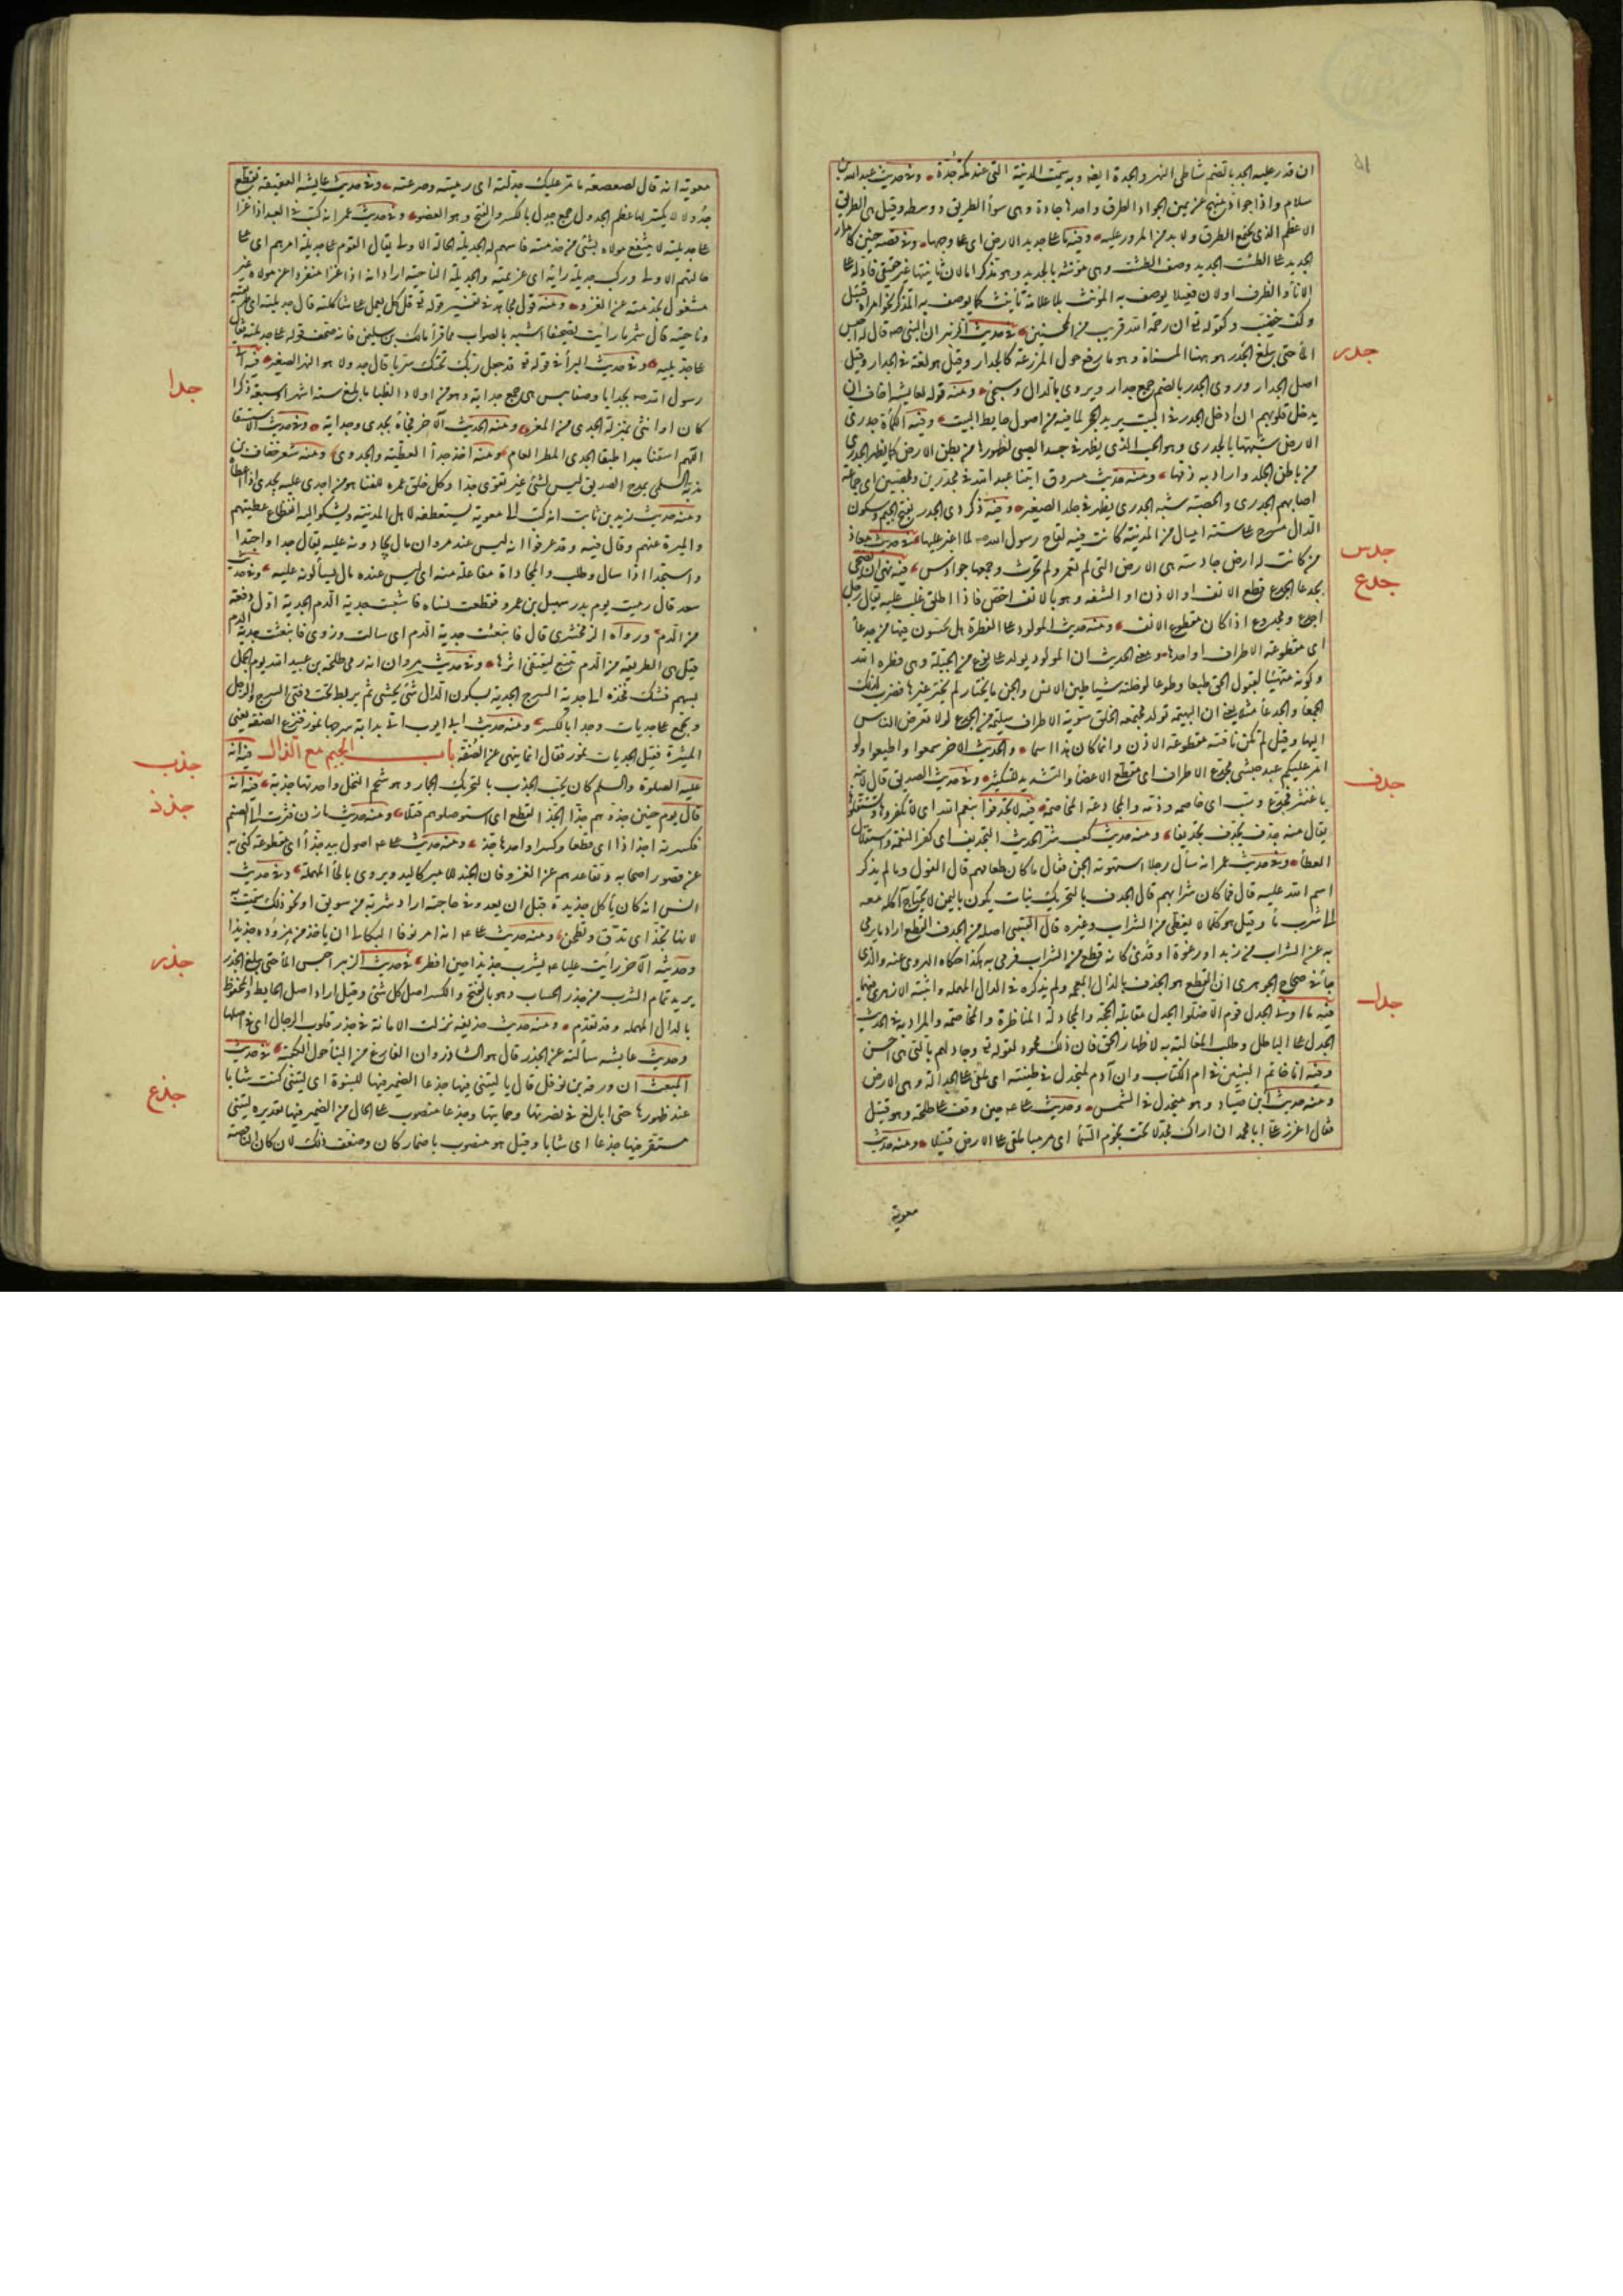 ان قدر عليه الجد بالضم شاطى النهر والجدة ايضه وبه سميت المدينة التى عند مكة جدة وفى حديث عبد الله بن
سلام واذا جواد منهج عن يمين الجواد الطرق واحدها جادة وهى سوا الطريق ووسطه وقيل هى الطريق
الاعظم الذى يجمع الطرق ولا بد من المرور عليه وفيه ما على جديد الارض اى على وجهها وفى قصة حنين كامرار
الحديد على الطست الجديد وصف الطست وهى مؤنثه بالجديد وهو مذكر اما لان تانيثها غير حقيقى فاوله على
الاناء والظرف او لان فعيلا يوصف به المؤنث بلا علامة تأنيث كما يوصف به المذكر نحو امراة قتيل
وكف خضيب وكقوله تع ان رحمة الله قريب من المحسنين فى حديث الزبير ان النبى صه قال له احبس
جدر
الماء حتى يبلغ الجدر هو ههنا المسناة وهو ما رفع حول المزرعة كالجدار وقيل هو لغة فى الجدار وقيل
اصل الجدار وروى الجدر بالضم جمع جدار ويروى بالذال وسيجئ ومنه قوله لعايشه اخاف ان
يدخل قلوبهم ان ادخل الجدر فى البيت يريد الحجر لما فيه من اصول حايط البيت وفيه الكماة جدرى
الارض شبهها بالجدرى وهو الحب الذى يظهر فى جسد الصبى لظهورها من بطن الارض كما يظهر الجدرى
من باطن الجلد واراد به ذمها ومنه حديث مسروق اتينا عبد الله فى مجدرين ومحصبين اى جماعة
اصابهم الجدرى والحصبة شبه الجدرى يظهر فى جلد الصغير وفيه ذكر ذى الجدر بفتح الجيم وسكون
الدال مسرح على ستة اميال من المدينة كانت فيه لقاح رسول الله صه لما اغير عليها فى حديث معاذ
جدس
من كانت له ارض جادسة هى الارض التى لم تعمر ولم تحرث وجمعها جوادس فيه نهى ان يضحى
جدع
بجدعا الجدع قطع الانف او الاذن او الشفه وهو بالانف اخص فاذا اطلق غلب عليه يقال رجل
اجدع ومجدوع اذا كان مقطوع الانف ومنه حديث المولود على الفطرة هل تحسون فيها من جدعا
اى مقطوعة الاطراف او احدها ومعنى الحديث ان المولود يولد على نوع من الجبلة وهى فطرة الله
وكونه متهيئا لقبول الحق طبعا وطوعا لو خلته شياطين الانس والجن ما يختار لم يختر غيرها فضرب لذلك
الجمعا والجدعا مثلا يعنى ان البهيمه تولد مجتمعه الخلق سوية الاطراف سليمة من الجدع لولا تعرض الناس
اليها وقيل لم تكن ناقته مقطوعة الاذن وانما كان هذا اسما والحديث الاخر اسمعوا واطيعوا ولو
امر عليكم عبد حبشى مجدع الاطراف اى مقطع الاعضاء والتشديد للتكثير وفى حديث الصديق قال لابنه
جدف
يا غنثر فجدع وسب اى خاصمه وذمه والمجادعة المخاصمة فيه لا تجدفوا بنعم الله اى لا تكفروها وتستقلوها
يقال منه جدف يجدف تجديفا ومنه حديث كعب شر الحديث التجديف اى كفر النعمة واستقلال
العطاء وفى حديث عمر انه سأل رجلا استهوته الجن فقال ما كان طعامهم قال الفول وما لم يذكر
اسم الله عليه قال فما كان شرابهم قال الجدف بالتحريك نبات يكون باليمن لا يحتاج آكله معه
الى شرب ماء وقيل هو كلما لا يغطى من الشراب وغيره قال القتيبى اصله من الجدف القطع اراد ما يرمى
به عن الشراب من زبد او رغوة او قذى كانه قطع من الشراب فرمى به هكذا حكاه الهروى عنه والذى
جاء فى صحاح الجوهرى ان القطع هو الجذف بالذال المعجمه ولم يذكره فى الدال المهمله واثبته الازهرى فيهما
جدل
فيه ما اوتى الجدل قوم الا ضلوا الجدل مقابلة الحجة والمجادلة المناظرة والمخاصمة والمراد به فى الحديث
الجدل على الباطل وطلب المغالبة به لاظهار الحق فان ذلك محمود لقوله تع وجادلهم بالتى هى احسن
وفيه انا خاتم النبيين فى ام الكتاب وان آدم لمنجدل فى طينته اى ملقى على الجدالة وهى الارض
ومنه حديث ابن صياد وهو منجدل فى الشمس وحديث على عه حين وقف على طلحة وهو قتيل
فقال اعزز على ابا محمد ان اراك مجدلا تحت نجوم السماء اى مرميا ملقى على الارض قتيلا ومنه حديث
معوية
معوية انه قال لصعصعة ما مر عليك جدلته اى رميته وصرعته وفى حديث عايشه العقيقة تقطع
جدولا لا يكسر لها عظم الجدول جمع جدل بالكسر والفتح وهو العضو وفى حديث عمر انه كتب فى العبد اذا غزا
على جديلته لا ينتفع مولاه بشئ من خدمته فاسهم له الجديلة الحالة الاولى يقال القوم على جديلة امرهم اى على
حالتهم الاولى وركب جديلة رايه اى عزيمته والجديلة الناحية اراد انه اذا غزا منفردا عن مولاه غير
مشغول بخدمته عن الغزو ومنه قول مجاهد فى تفسير قوله تع قل كل يعمل على شاكلته قال جديلته اى طريقته
وناحيته قال شمر ما رايت تصحيفا اشبه بالصواب مما قرأ مالك بن سليمن فانه صحف قوله على جديلته فقال
على حد يليه وفى حديث البراء فى قوله تع قد جعل ربك تحتك سريا قال جدولا هو النهر الصغير فيه اتى
جدا
رسول الله صه بجدايا وضغابيس هى جمع جداية وهو من اولاد الظبا ما بلغ ستة اشهر او سبعة ذكرا
كان او انثى بمنزلة الجدى من المعز ومنه الحديث الآخر فجاءه بجدى وجداية وفى حديث الاستسقا
اللهم اسقنا جدا طبقا الجدى المطر العام ومنه اخذ جدا العطية والجدوى ومنه شعر خفاف بن
ندبة السلمى يمدح الصديق ليس لشئ غير تقوى جدا وكل خلق عمره للفنا هو من اجدى عليه يجدى اذا اعطاه
ومنه حديث زيد بن ثابت انه كتب الى معوية يستعطفه لاهل المدينة ويشكو اليه انقطاع عطيتهم
والميرة عنهم وقال فيه وقد عرفوا انه ليس عند مروان مال يجادونه عليه يقال جدا واجتدا
واستجدا اذا سال وطلب والمجاداة مفاعلة منه اى ليس عنده مال يسألونه عليه وفى حديث
سعد قال رميت يوم بدر سهيل بن عمرو فقطعت نساه فانثعبت جدية الدم الجدية اول دفعة
من الدم ورواه الزمخشرى قال فانبعثت جدية الدم اى سالت وروى فاتبعت جدية الدم
قيل هى الطريقة من الدم تتبع ليقتفى اثرها وفى حديث مروان انه رمى طلحة بن عبيد الله يوم الجمل
بسهم فشك فخذه الى جدية السرج الجدية بسكون الدال شئ يحشى ثم يربط تحت دفتى السرج والرحل
ويجمع على جديات وجدا بالكسر ومنه حديث ابى ايوب اتى بدابة سرجها نمور فنزع الصفة يعنى
الميثرة فقيل الجديات نمور فقال انما ينهى عن الصفة باب الجيم مع الذال فيه انه
جذب
عليه الصلوة والسلم كان يحب الجذب بالتحريك الجمار وهو شحم النخل واحدتها جذبة فيه انه
جذذ
قال يوم حنين جذوهم جذا الجذ القطع اى استوصلوهم قتلا ومنه حديث مازن فثرت الى الصنم
فكسرته اجذاذا اى قطعا وكسرا واحدها جذ ومنه حديث على عه اصول بيد جذاء اى مقطوعة كنى به
عن قصور اصحابه وتقاعدهم عن الغزو فان الجند للامير كاليد ويروى بالحاء المهملة وفى حديث
انس انه كان يأكل جذيذة قبل ان يغدو فى حاجته اراد شربة من سويق او نحو ذلك سميت به
لانها تجذ اى تدق وتطحن ومنه حديث على عه انه امر نوفا البكالى ان ياخذ من مزوده جذيذا
وحديثه الآخر رأيت عليا عه يشرب جذيذا حين افطر فى حديث الزبير احبس الماء حتى يبلغ الجذر
جذر
يريد تمام الشرب من جذر الحساب وهو بالفتح والكسر اصل كل شئ وقيل اراد اصل الحايط والمحفوظ
بالدال المهمله وقد تقدم ومنه حديث حذيفه نزلت الامانة فى جذر قلوب الرجال اى فى اصلها
وحديث عايشه سألته عن الجذر قال هو الشاذروان الفارغ من البناء حول الكعبة فى حديث
جذع
المبعث ان ورقة بن نوفل قال يا ليتنى فيها جذعا الضمير فيها للنبوة اى ليتنى كنت شابا
عند ظهورها حتى ابالغ فى نصرتها وحمايتها وجذعا منصوب على الحال من الضمير فيها تقديره ليتنى
مستقر فيها جذعا اى شابا وقيل هو منصوب باضمار كان وضعف ذلك لان كان الناقصة